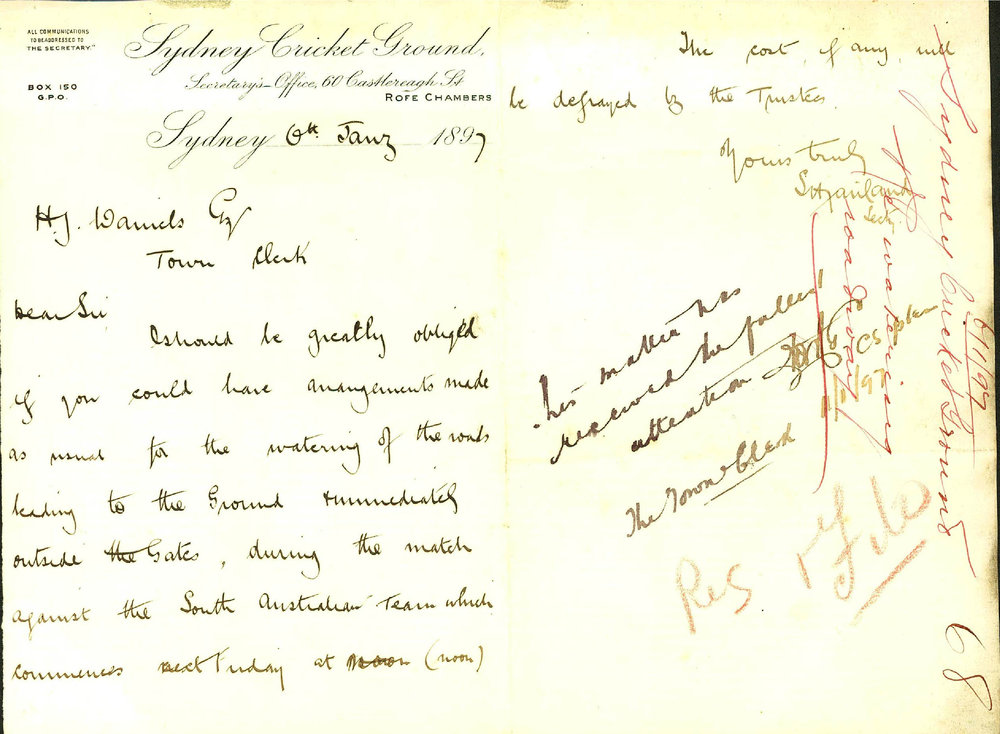 ALL COMMUNICATIONS
TO BE ADDRESSED TO
"THE SECRETARY."
BOX 150
G.P.O.
Sydney Cricket Ground,
Secretary's Office, 60 Castlereagh St
ROFE CHAMBERS
Sydney 6th Jany 1897
H.J. Daniels Esq
Town Clerk
Dear Sir
I should be greatly obliged
if you could have arrangements made
as usual for the watering of the roads
leading to the Ground & immediately
outside the Gates, during the match
against the South Australian Team which
commences next Friday at noon (noon)
The cost, if any, will
be defrayed by the Trustees.
Yours truly
Secty.
This matter has
received the fullest
attention
CS
11/1/97
The Town Clerk
Res & File
6/1/97
Sydney Cricket Ground
watering
roadway
68